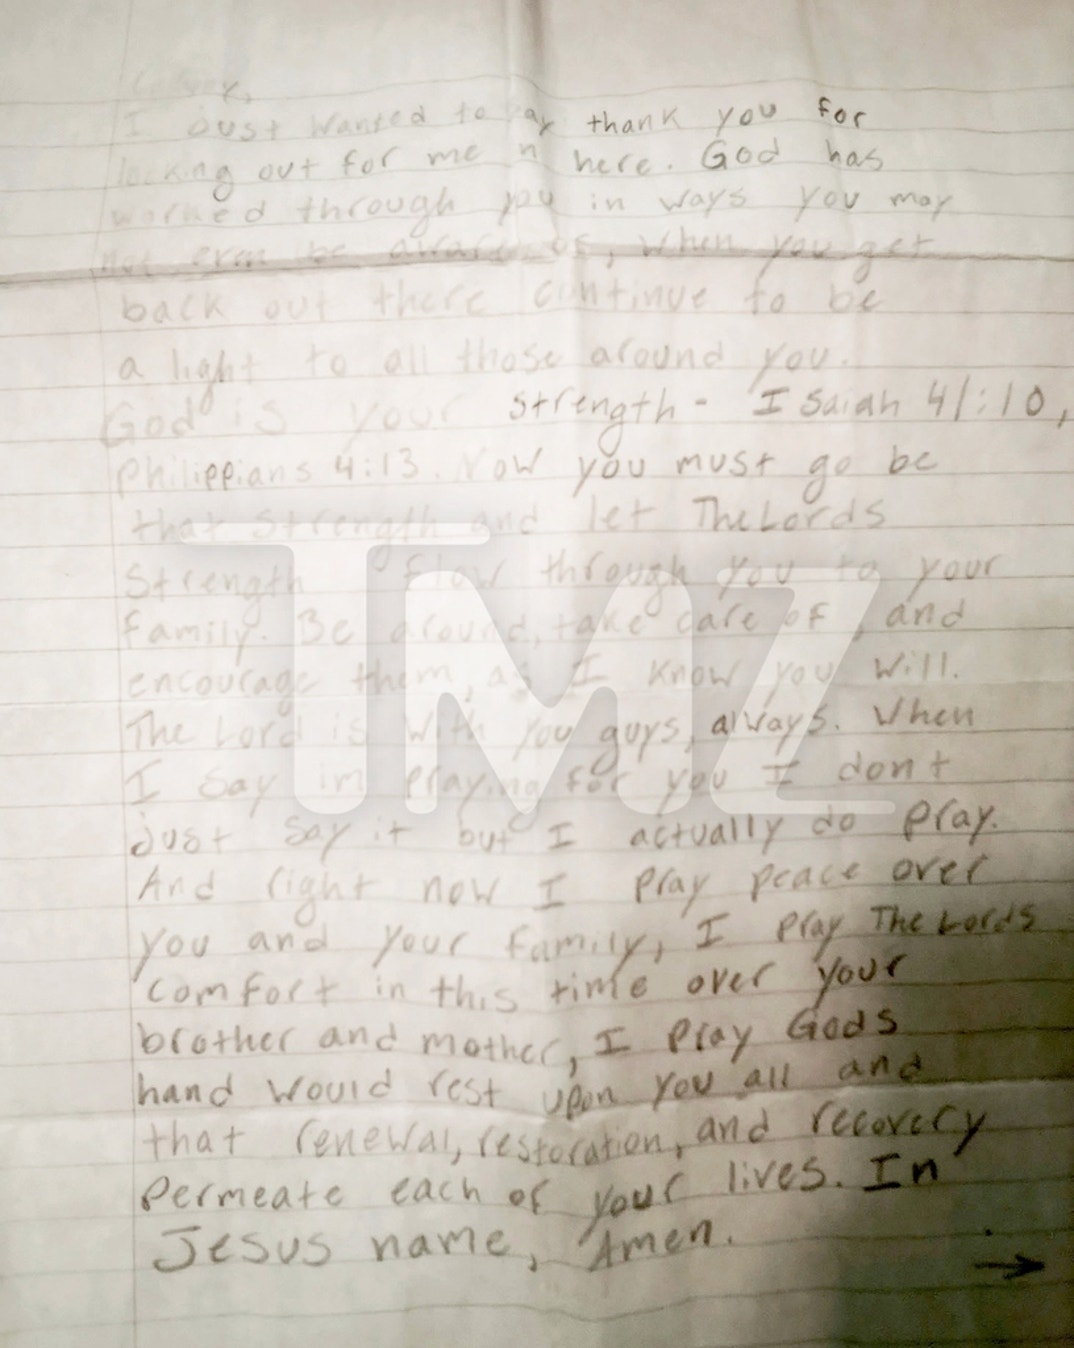 I Just wanted to say thank you for
looking out for me in here. God has
worked through you in ways you may
not even be aware of, when you get
back out there continue to be
a light to all those around you.
God is your strength - Isaiah 41:10,
Philippians 4:13. Now you must go be
that strength and let The Lords
Strength flow through you to your
family. Be around, take care of, and
encourage them, as I know you will.
The Lord is with you guys, always. When
I say im praying for you I dont
just say it but I actually do pray.
And right now I pray peace over
you and your family, I pray The Lords
comfort in this time over your
brother and mother, I pray Gods
hand would rest upon you all and
that renewal, restoration, and recovery
permeate each of your lives. In
Jesus name, Amen.
→
TMZ